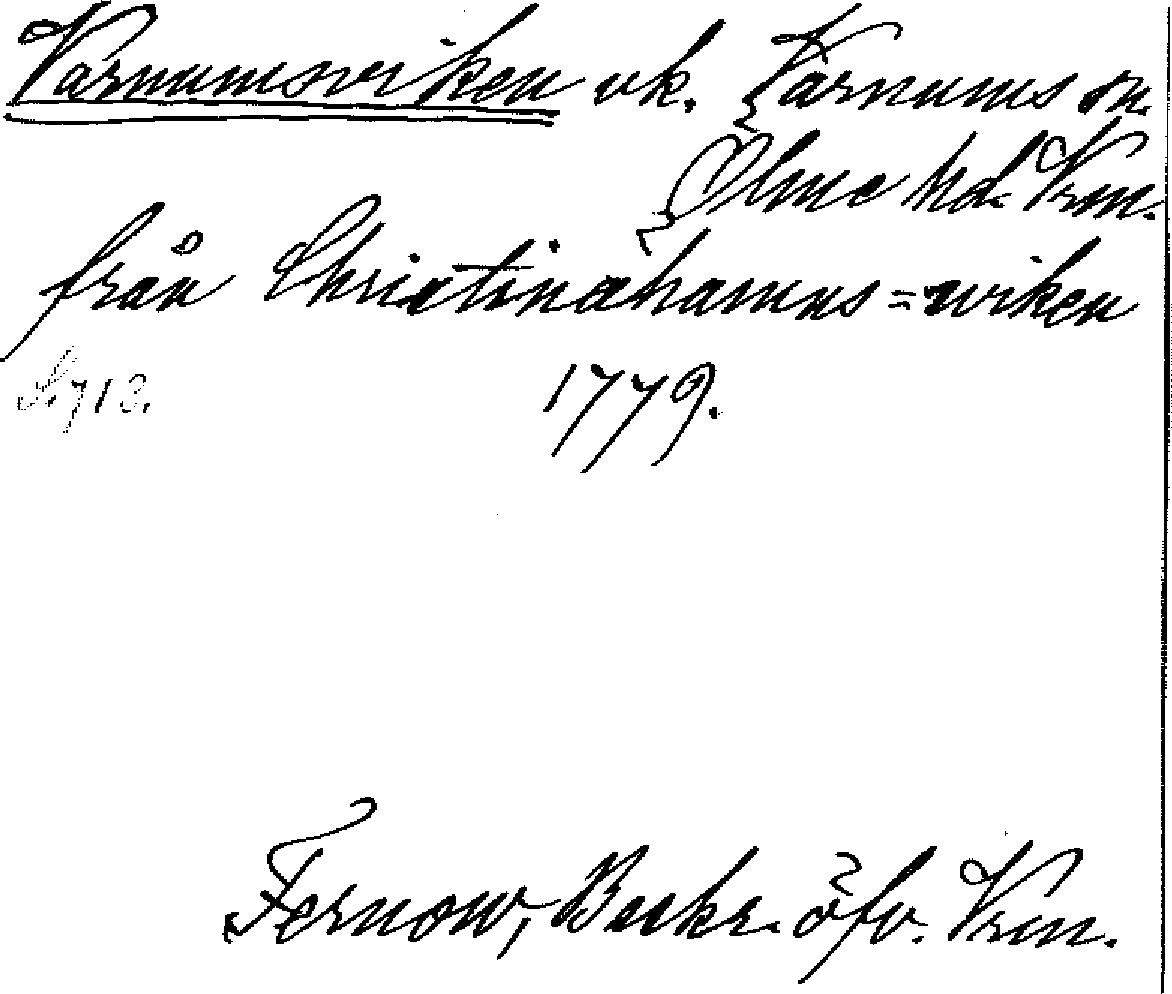 Varnumsviken vk. Varnums sn.
Ölme hd. Vrm.
från Christinæhamns=wiken
S. 713. 1779.
Fernow, Beskr. öfv. Vrm.